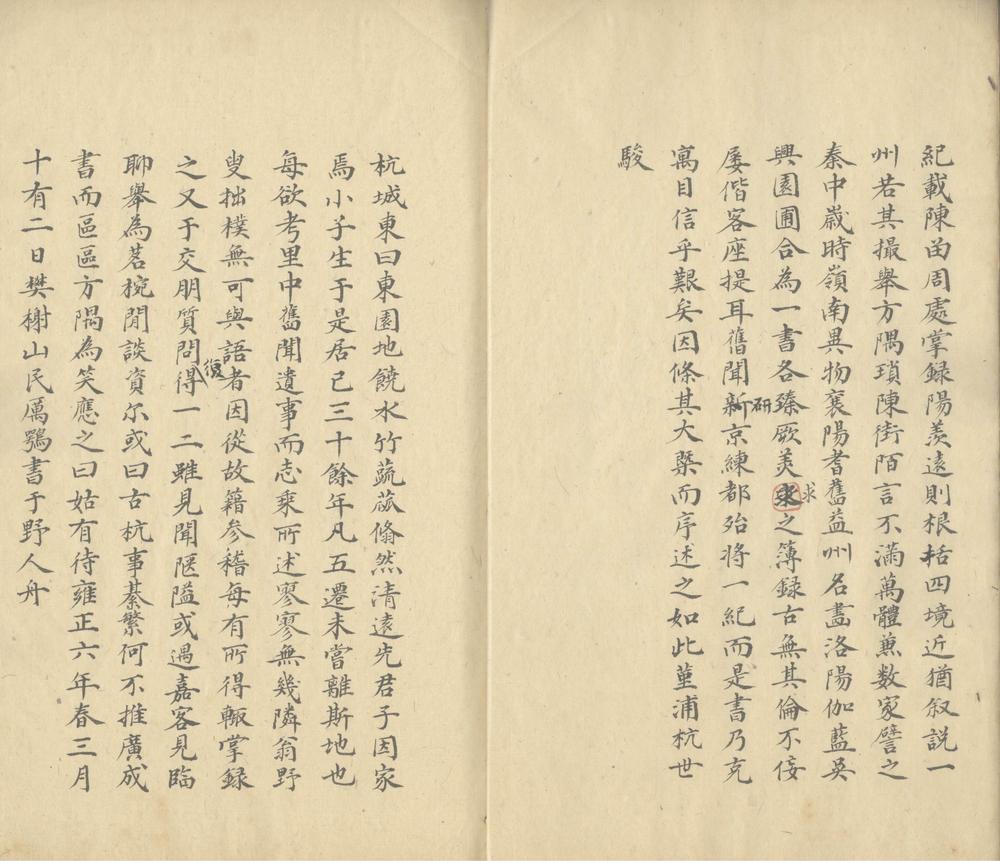 紀載陳留周處掌録陽羨遠則根括四境近猶叙説一
州若其撮舉方隅瑣陳街陌言不滿萬體蕙数家譬之
秦中嵗時嶺南異物襄陽耆舊益州名畫洛陽伽藍吳
興園圃合為一書各臻厥美求之簿録古無其倫不佞
屡偕客座提耳舊聞新研京練都殆將一紀而是書乃克
寓目信乎艱矣因條其大槩而序述之如此堇浦杭世
駿
杭城東曰東園地饒水竹蔬蓏翛然清遠先君子因家
焉小子生于是居已三十餘年凡五遷未嘗離斯地也
每欲考里中舊聞遺事而志乘所述寥寥無幾隣翁野
叟拙樸無可與語者因從故籍參稽每有所得輙掌録
之又于交朋質問復得一二雖見聞陿隘或遇嘉客見臨
聊舉為茗椀閒談資尔或曰古杭事綦繁何不推廣成
書而區區方隅為笑應之曰姑有待雍正六年春三月
十有二日樊榭山民厲鶚書于野人舟